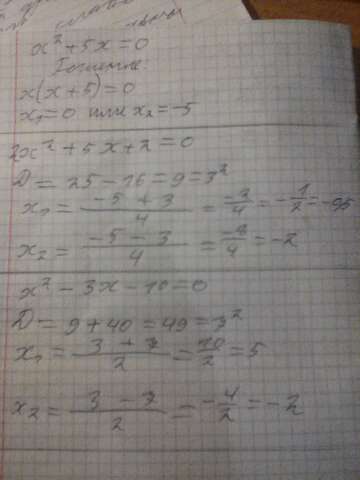 x² + 5x = 0
Решение:
x(x + 5) = 0
x₁ = 0 или x₂ = -5
2x² + 5x + 2 = 0
D = 25 - 16 = 9 = 3²
x₁ = (-5 + 3)/4 = -2/4 = -1/2 = -0,5
x₂ = (-5 - 3)/4 = -8/4 = -2
x² - 3x - 10 = 0
D = 9 + 40 = 49 = 7²
x₁ = (3 + 7)/2 = 10/2 = 5
x₂ = (3 - 7)/2 = -4/2 = -2